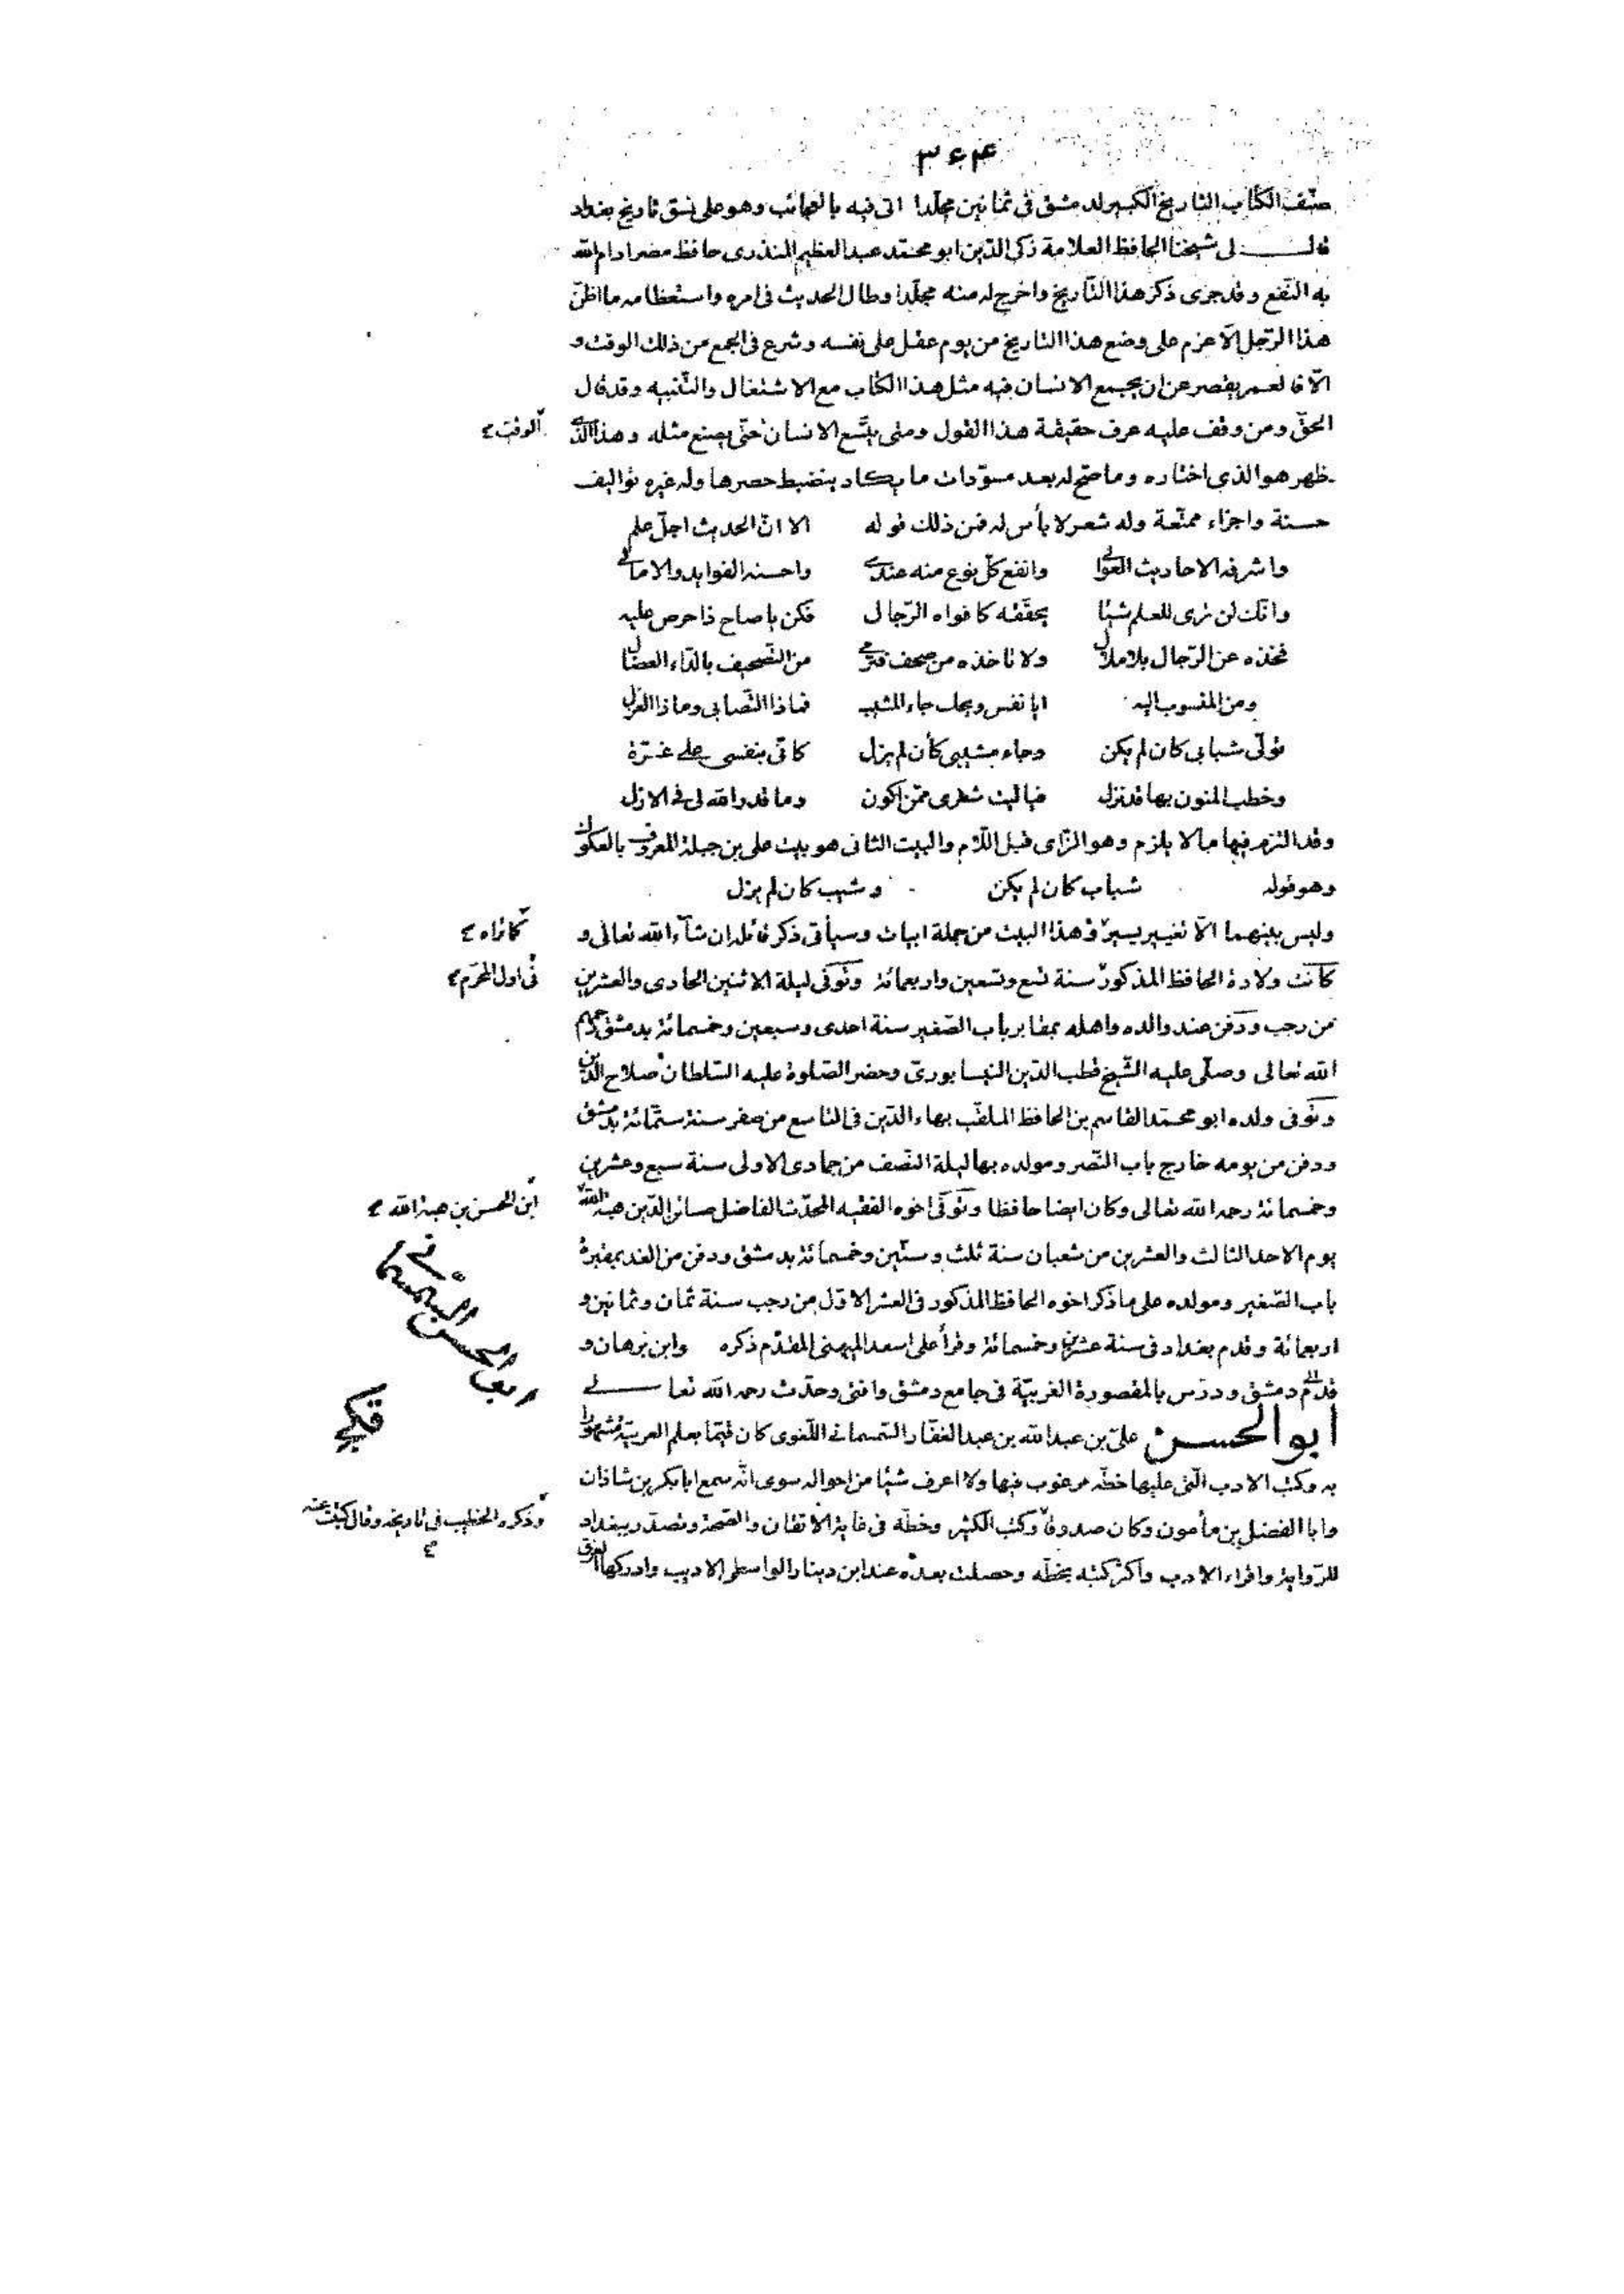 ٣٤٣
صنّف الكتاب التاريخ الكبير لدمشق فى ثمانين مجلّدا اتى فيه بالعجائب وهو على نسق تاريخ بغداد
قال لى شيخنا الحافظ العلامة زكى الدّين ابو محمّد عبد العظيم المنذرى حافظ مصر ادام الله
به النّفع وقد جرى ذكر هذا التّاريخ واخرج له منه مجلّدا وطال الحديث فى امره واستعظامه ما اظنّ
هذا الرّجل الّا عزم على وضع هذا التاريخ من يوم عقل على نفسه وشرع فى الجمع من ذلك الوقت و
الّا فالعمر يقصر عن ان يجمع الانسان فيه مثل هذا الكتاب مع الاشتغال والتّنبيه وقد قال
الحقّ ومن وقف عليه عرف حقيقة هذا القول ومتى يتّسع الانسان حتّى يصنع مثله وهذا الّذى
الوقت
ظهر هو الذى اختاره وما صحّ له بعد مسوّدات ما يكاد ينضبط حصرها وله غيره تواليف
حسنة واجزاء ممتّعة وله شعر لا بأس له فمن ذلك قوله الا انّ الحديث اجلّ علم
واشرفه الاحاديث العوالى وانفع كلّ نوع منه عندى واحسنه الفوايد والامالى
وانّك لن ترى للعلم شيئا يحقّقه كافواه الرّجال فكن يا صاح ذا حرص عليه
فخذه عن الرّجال بلا ملال ولا تاخذه من صحف فترمى من التّصحيف بالدّاء العضال
ومن المنسوب اليه ايا نفس ويحك جاء المشيب فماذا التّصابى وماذا الغزل
تولّى شبابى كان لم يكن وجاء مشيبى كأن لم يزل كانّى بنفسى على غرّة
وخطب المنون بها قد نزل فياليت شعرى ممّن اكون وما قدر الله لى فى الازل
وقد التزم فيها ما لا يلزم وهو الزّاى قبل اللّام والبيت الثانى هو بيت على بن جبلة المعروف بالعكوك
وهو قوله شباب كان لم يكن وشيب كان لم يزل
وليس بينهما الّا تغيير يسير وهذا البيت من جملة ابيات وسيأتى ذكر قائله ان شآء الله تعالى و
كماتراه
كانت ولادة الحافظ المذكور سنة تسع وتسعين واربعمائة وتوفى ليلة الاثنين الحادى والعشرين
فى اول المحرّم
من رجب ودفن عند والده واهله بمقابر باب الصّغير سنة احدى وسبعين وخمسمائة بدمشق رحمهم
الله تعالى وصلّى عليه الشّيخ قطب الدّين النيسابورىّ وحضر الصّلوة عليه السّلطان صلاح الدّين
وتوفى ولده ابو محمّد القاسم بن الحافظ الملقّب بهاء الدّين فى التاسع من صفر سنة ستّمائة بدمشق
ودفن من يومه خارج باب النّصر ومولده بها ليلة النّصف من جمادى الاولى سنة سبع وعشرين
وخمسمائة رحمه الله تعالى وكان ايضا حافظا وتوفى اخوه الفقيه المحدّث الفاضل صائن الدّين هبة الله
ابن الحسن بن هبة الله
يوم الاحد الثالث والعشرين من شعبان سنة ثلث وستّين وخمسمائة بدمشق ودفن من الغد بمقبرة
باب الصّغير ومولده على ما ذكر اخوه الحافظ المذكور فى العشر الاوّل من رجب سنة ثمان وثمانين و
اربعمائة وقدم بغداد فى سنة عشرين وخمسمائة وقرأ على اسعد الميهنى المقدّم ذكره وابن برهان و
قدم دمشق ودرّس بالمقصورة الغربيّة فى جامع دمشق وافتى وحدّث رحمه الله تعالى
ابو الحسن السمسمانى
ابو الحسن علىّ بن عبد الله بن عبد الغفّار السّمسمانى اللّغوى كان قيّما بعلم العربيّة مشهورا
به وكتب الادب الّتى عليها خطّه مرغوب فيها ولا اعرف شيئا من احواله سوى انّه سمع ابا بكر بن شاذان
وابا الفضل بن مأمون وكان صدوقا وكتب الكثير وخطّه فى غاية الاتقان والصّحة وتصدّر ببغداد
وذكره الخطيب فى تاريخه وقال كتبت عنه
للرّواية واقراء الادب واكثر كتبه بخطّه وحصلت بعده عند ابن دينار الواسطى الاديب وادركها الغرق